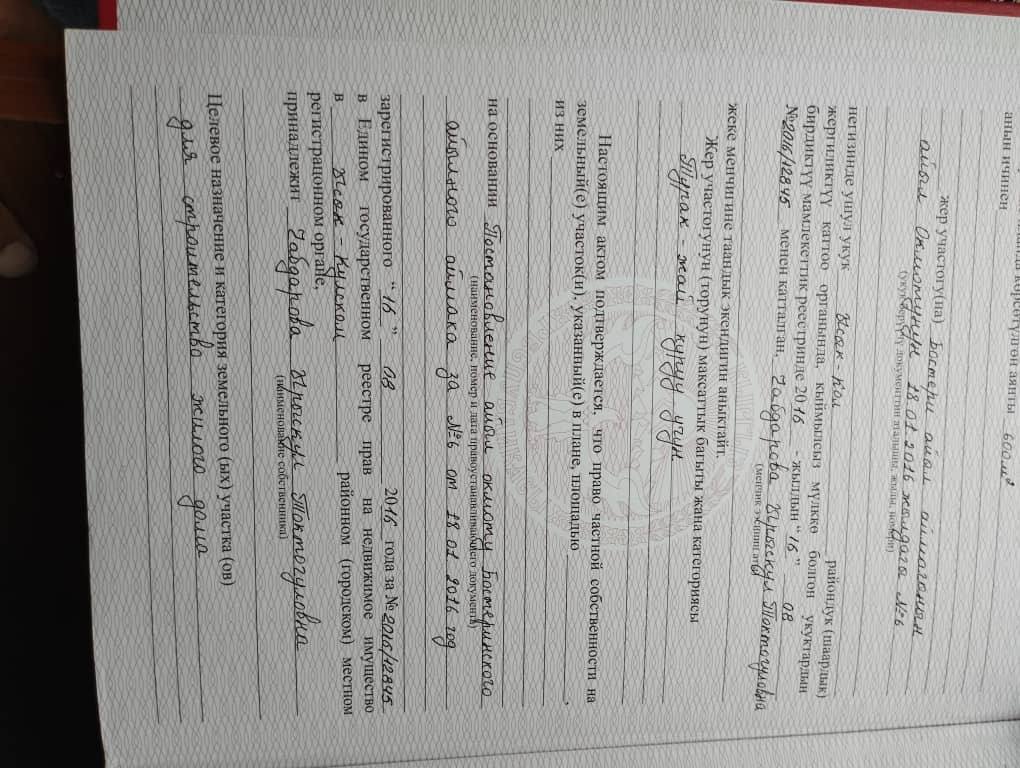 анын ичинен 600 м²
жер участогу(на) Бостери айыл аймагынын
айыл Окмотунун 18 01 2016 жылдагы №6
(укук берүүчү документтин аталышы, жылы, номери)
негизинде ушул укук Ысык-Кол районддук (шаардык)
жергиликтүү каттоо органында, кыймылсыз мүлккө болгон укуктардын
бирдиктүү мамлекеттик реестринде 2016 - жылдын "16" 08
№2016/12845 менен катталган, Чабдарова Кырыскул Токтогуловна
(менчик ээсинин аты)
жеке менчигине таандык экендигин аныктайт.
Жер участогунун (торунун) максаттык багыты жана категориясы
Турак-жай куруу үчүн
Настоящим актом подтверждается, что право частной собственности на
земельный(е) участок(и), указанный(е) в плане, площадью ,
из них
на основании Постановление айыл окмоту Бостеринского
(наименование, номер и дата правоустанавливающего документа)
айылного аймака за №6 от 18 01 2016 год
зарегистрированного "16" 08 2016 года за №2016/12845
в Едином государственном реестре прав на недвижимое имущество
в Ысык-Кулском районном (городском) местном
регистрационном органе,
принадлежит Чабдарова Кырыскул Токтогуловна
(наименование собственника)
Целевое назначение и категория земельного (ых) участка (ов)
для строительство жилого дома